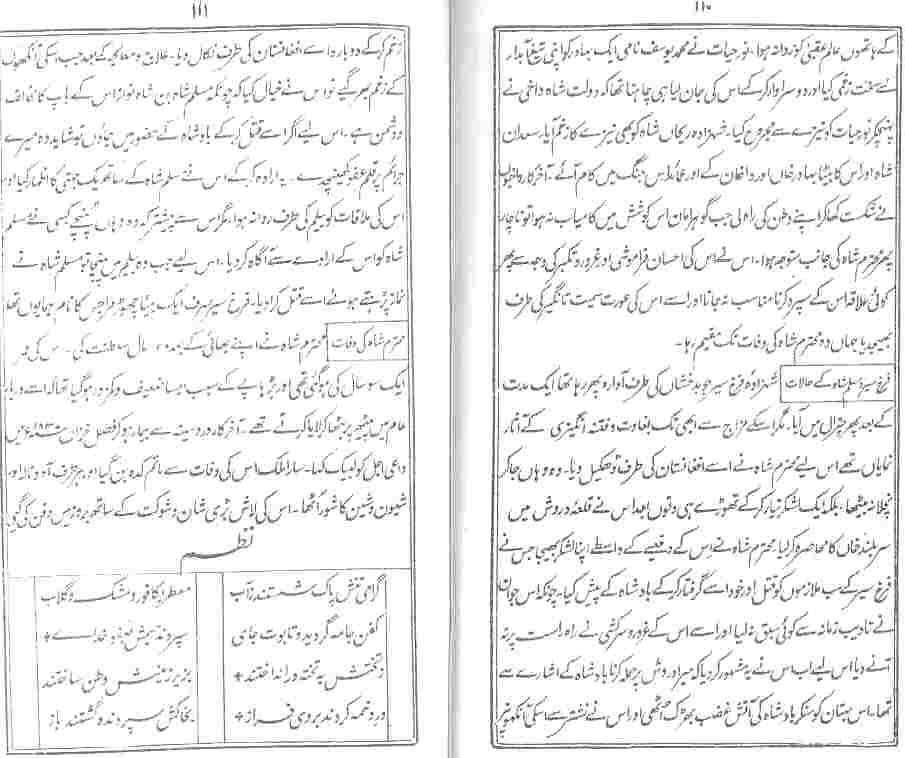 ۱۱۰
کے ہاتھوں عالم عقبیٰ کو روانہ ہوا۔ نور حیات نے محمد یوسف نامی ایک بہادر کو اپنی تیغ آبدار
سے سخت زخمی کیا اور دوسرا وار کر کے اس کی جان لیا ہی چاہتا تھا کہ دولت شاہ داخی نے
پہنچکر نور حیات کو نیزے سے مجروح کیا۔ شہزادہ ریحان شاہ کو بھی نیزے کا زخم آیا۔ سعدان
شاہ اور اس کا بیٹا بہادر خاں اور دافغان کے اور عمائد اس جنگ میں کام آئے۔ آخر کار
نے شکست کھا کر اپنے وطن کی راہ لی جب گوہر امان اس کوشش میں کامیاب نہ ہوا تو ناچار
پھر محترم شاہ کی جانب متوجہ ہوا۔ اس نے اس کی احسان فراموشی اور غرور و تکبر کی وجہ سے پھر
کوئی علاقہ اس کے سپرد کرنا مناسب نہ جانا اور اسے اس کی عورت سمیت تانگیر کی طرف
بھیجدیا جہاں وہ محترم شاہ کی وفات تک مقیم رہا۔
فرخ سیر و مسلم شاہ کے حالات شہزادہ فرخ سیر جو بدخشاں کی طرف آوارہ پھر رہا تھا ایک مدت
کے بعد پھر چترال میں آیا۔ مگر اسکے مزاج سے ابھی تک بغاوت و فتنہ انگیزی کے آثار
نمایاں تھے اس لیے محترم شاہ نے اسے افغانستان کی طرف دھکیل دیا۔ وہ وہاں جا کر
نچلا نہ بیٹھا، بلکہ ایک لشکر تیار کر کے تھوڑے ہی دنوں بعد اس نے قلعہ دروش میں
سربلند خاں کا محاصرہ کر لیا محترم شاہ نے اس کے دفعیے کے واسطے اپنا لشکر بھیجا جس نے
فرخ سیر کے سب ملازموں کو قتل اور خود اسے گرفتار کر کے بادشاہ کے پیش کیا۔ چونکہ اس جوان
نے تادیب زمانہ سے کوئی سبق نہ لیا اور اسے اس کے غرور و سرکشی نے راہ راست پر نہ
آنے دیا اس لیے اب اس نے یہ مشہور کر دیا کہ میرا دروش پر حملہ کرنا بادشاہ کے اشارے سے
تھا۔ اس بہتان کو سنکر بادشاہ کی آتش غضب بھڑک اٹھی اور اس نے نشتر سے اسکی آنکھوں پر
۱۱۱
زخم کر کے دوبارہ اسے افغانستان کی طرف نکال دیا۔ علاج و معالجہ کے بعد جب اسکی آنکھوں
کے زخم بھر گئے تو اس نے خیال کیا کہ چونکہ مسلم شاہ بن شاہ نواز اس کے باپ کا مخالف
و دشمن ہے۔ اس لیے اگر اسے قتل کر کے بادشاہ کے حضور میں جاؤں تو شاید وہ میرے
جرائم پر قلم عفو کھینچدے۔ یہ ارادہ کر کے اس نے مسلم شاہ کے ساتھ یک جہتی کا اظہار کیا اور
اس کی ملاقات کو یلم کی طرف روانہ ہوا مگر اس سے پیشتر کہ وہ وہاں پہنچے کسی نے مسلم
شاہ کو اس کے ارادے سے آگاہ کر دیا۔ اس لیے جب وہ یلم میں پہنچا تو مسلم شاہ نے
نماز پڑہتے ہوئے اسے قتل کرا دیا۔ فرخ سیر صرف ایک بیٹا چھوڑ مرا جس کا نام ہمایوں تھا
محترم شاہ کی وفات محترم شاہ نے اپنے بھائی کے بعد سال سلطنت کی۔ اس کی عمر
ایک سو سال کی ہو گئی تھی اور بڑہاپے کے سبب ایسا ضعیف و کمزور ہو گیا تھا کہ اسے دربار
عام میں پیٹھ پر بٹھا کر لایا کرتے تھے۔ آخر کار درد سینہ سے بیمار ہو کر فصل خزاں ۱۸۳۷ء میں
داعی اجل کو لبیک کہا۔ سارا ملک اس کی وفات سے ماتم کدہ بن گیا اور ہر طرف آہ و نالہ اور
شیون و شین کا شور اٹھا۔ اس کی لاش بڑی شان و شوکت کے ساتھ میں دفن کی گئی
نظم
گرامی تنش پاک شستند ز آب معطر بکافور و مشک و گلاب
کفن جامہ گردید و تابوت جای سپردند بخدائے
ز تختش بہ تختہ در انداختند بزیر زمینش وطن ساختند
در دخمہ کردند بروی فراز بخاکش سپردند و گشتند باز